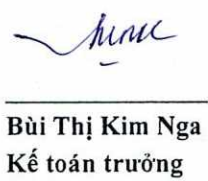 Bùi Thị Kim Nga
Kế toán trưởng